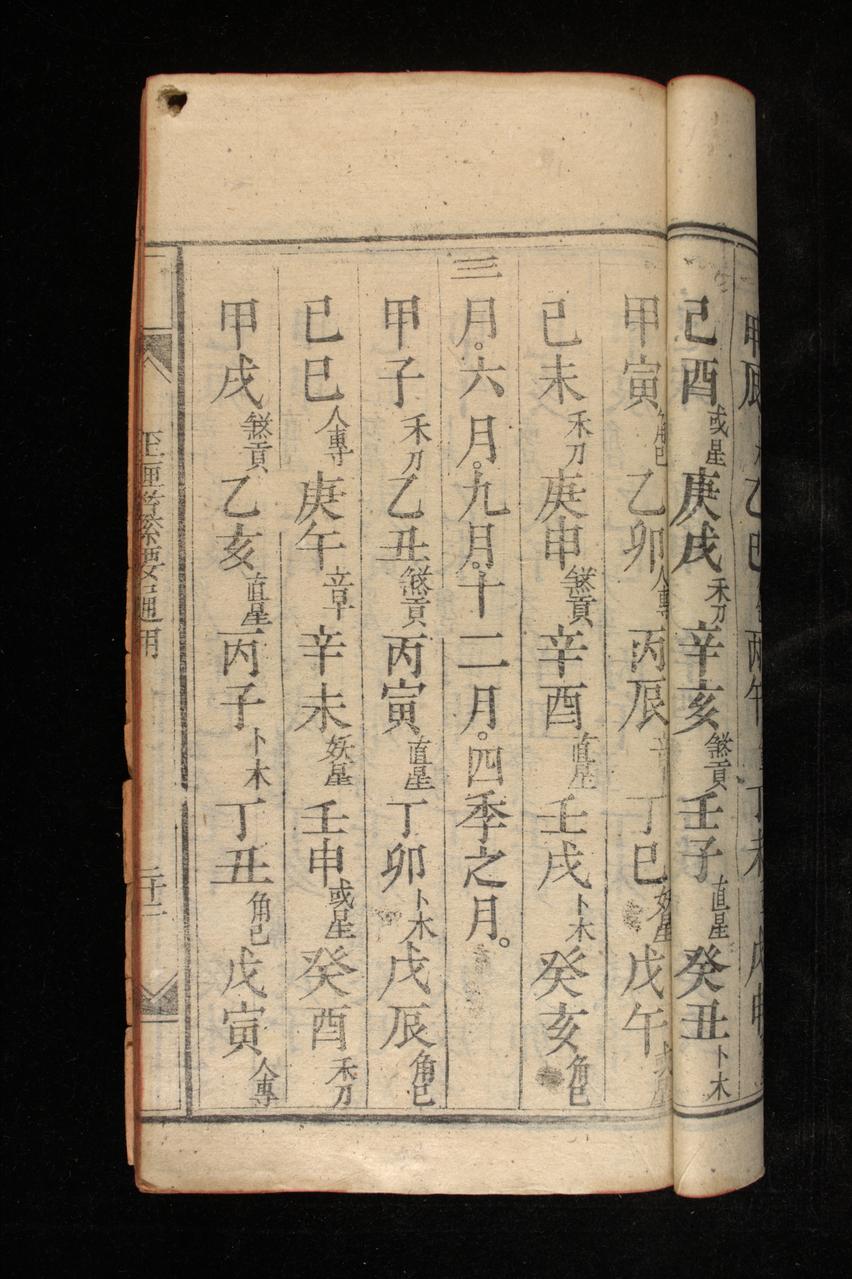 甲辰 乙巳 丙午 丁未 戊申
己酉或星庚戌禾刀辛亥煞貢壬子直星癸丑卜木
甲寅角己乙卯人專丙辰 丁巳妖星戊午或星
己未禾刀庚申煞貢辛酉直星壬戌卜木癸亥角己
三月。六月。九月。十二月。四季之月。
甲子禾刀乙丑煞貢丙寅直星丁卯卜木戊辰角己
己巳人專庚午立早辛未妖星壬申或星癸酉禾刀
甲戌煞貢乙亥直星丙子卜木丁丑角己戊寅人專
通用